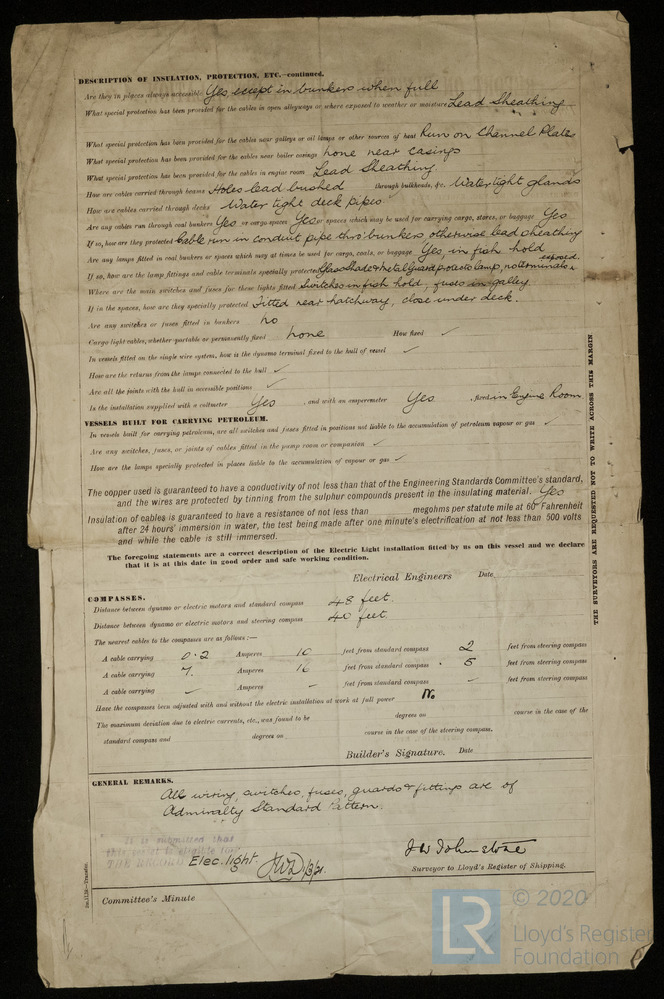 DESCRIPTION OF INSULATION, PROTECTION, ETC.—continued.
Are they in places always accessible Yes except in bunkers when full
What special protection has been provided for the cables in open alleyways or where exposed to weather or moisture Lead Sheathing
What special protection has been provided for the cables near galleys or oil lamps or other sources of heat Run on Channel Plate
What special protection has been provided for the cables near boiler casings none near casings
What special protection has been provided for the cables in engine room Lead Sheathing
How are cables carried through beams Holes lead bushed through bulkheads, &c. Water tight glands
How are cables carried through decks Water tight deck pipes
Are any cables run through coal bunkers Yes or cargo spaces Yes or spaces which may be used for carrying cargo, stores, or baggage Yes
If so, how are they protected Cable run in conduit pipe thro' bunkers otherwise lead sheathing
Are any lamps fitted in coal bunkers or spaces which may at times be used for cargo, coals, or baggage Yes, in fish hold
If so, how are the lamp fittings and cable terminals specially protected Glass Shade & metal guard protects lamp, no terminals exposed
Where are the main switches and fuses for these lights fitted Switches in fish hold, fuses in galley
If in the spaces, how are they specially protected Fitted near hatchway, close under deck.
Are any switches or fuses fitted in bunkers no
Cargo light cables, whether portable or permanently fixed none How fixed ✓
In vessels fitted on the single wire system, how is the dynamo terminal fixed to the hull of vessel ✓
How are the returns from the lamps connected to the hull ✓
Are all the joints with the hull in accessible positions ✓
Is the installation supplied with a voltmeter Yes , and with an amperemeter Yes , fixed in Engine Room
VESSELS BUILT FOR CARRYING PETROLEUM.
In vessels built for carrying petroleum, are all switches and fuses fitted in positions not liable to the accumulation of petroleum vapour or gas ✓
Are any switches, fuses, or joints of cables fitted in the pump room or companion ✓
How are the lamps specially protected in places liable to the accumulation of vapour or gas ✓
The copper used is guaranteed to have a conductivity of not less than that of the Engineering Standards Committee's standard,
and the wires are protected by tinning from the sulphur compounds present in the insulating material. Yes
Insulation of cables is guaranteed to have a resistance of not less than megohms per statute mile at 60° Fahrenheit
after 24 hours' immersion in water, the test being made after one minute's electrification at not less than 500 volts
and while the cable is still immersed.
The foregoing statements are a correct description of the Electric Light installation fitted by us on this vessel and we declare
that it is at this date in good order and safe working condition.
Electrical Engineers Date
COMPASSES.
Distance between dynamo or electric motors and standard compass 48 feet.
Distance between dynamo or electric motors and steering compass 40 feet
The nearest cables to the compasses are as follows:—
A cable carrying 0.2 Amperes 10 feet from standard compass 2 feet from steering compass
A cable carrying 7. Amperes 16 feet from standard compass 5 feet from steering compass
A cable carrying ✓ Amperes – feet from standard compass – feet from steering compass
Have the compasses been adjusted with and without the electric installation at work at full power No
The maximum deviation due to electric currents, etc., was found to be degrees on course in the case of the
standard compass and degrees on course in the case of the steering compass.
Builder's Signature. Date
GENERAL REMARKS.
All wiring, switches, fuses, guards & fittings are of
Admiralty Standard Pattern.
It is submitted that
this vessel is eligible for
THE RECORD. Elec. light.
J W Johnstone
Surveyor to Lloyd's Register of Shipping.
Committee's Minute
THE SURVEYORS ARE REQUESTED NOT TO WRITE ACROSS THIS MARGIN
© 2020
LR
Lloyd's Register
Foundation